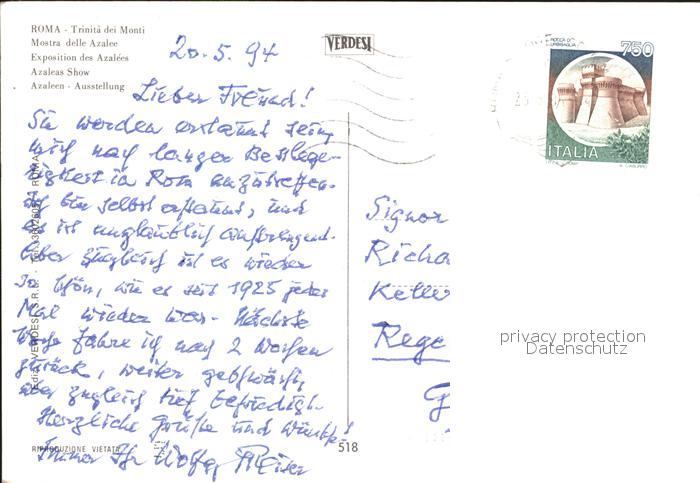 ROMA - Trinità dei Monti
Mostra delle Azalee
Exposition des Azalées
Azaleas Show
Azaleen - Ausstellung
VERDESI
20.5.94
Lieber Freund!
Sie werden erstaunt sein,
mich nach langer Bettläge-
rigkeit in Rom anzutreffen.
Ich bin selbst erstaunt, und
es ist unglaublich anstrengend.
Aber zugleich ist es wieder
so schön, wie es seit 1925 jedes
Mal wieder war. Nächste
Woche fahre ich nach 2 Wochen
zurück, weiter geschwächt,
aber zugleich tief befriedigt.
Herzliche Grüße und Wünsche!
Immer Ihr Wolfg
RIPRODUZIONE VIETATA
518
ROCCA DI
URBISAGLIA
750
ITALIA
Signor
Richa
Kelle
Rege
G
privacy protection
Datenschutz